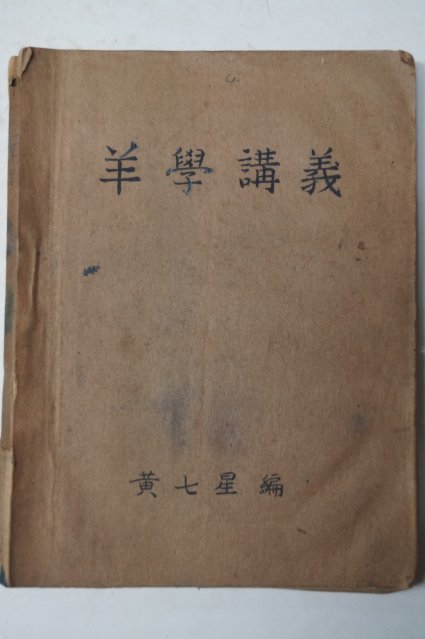 羊學講義
黃七星編